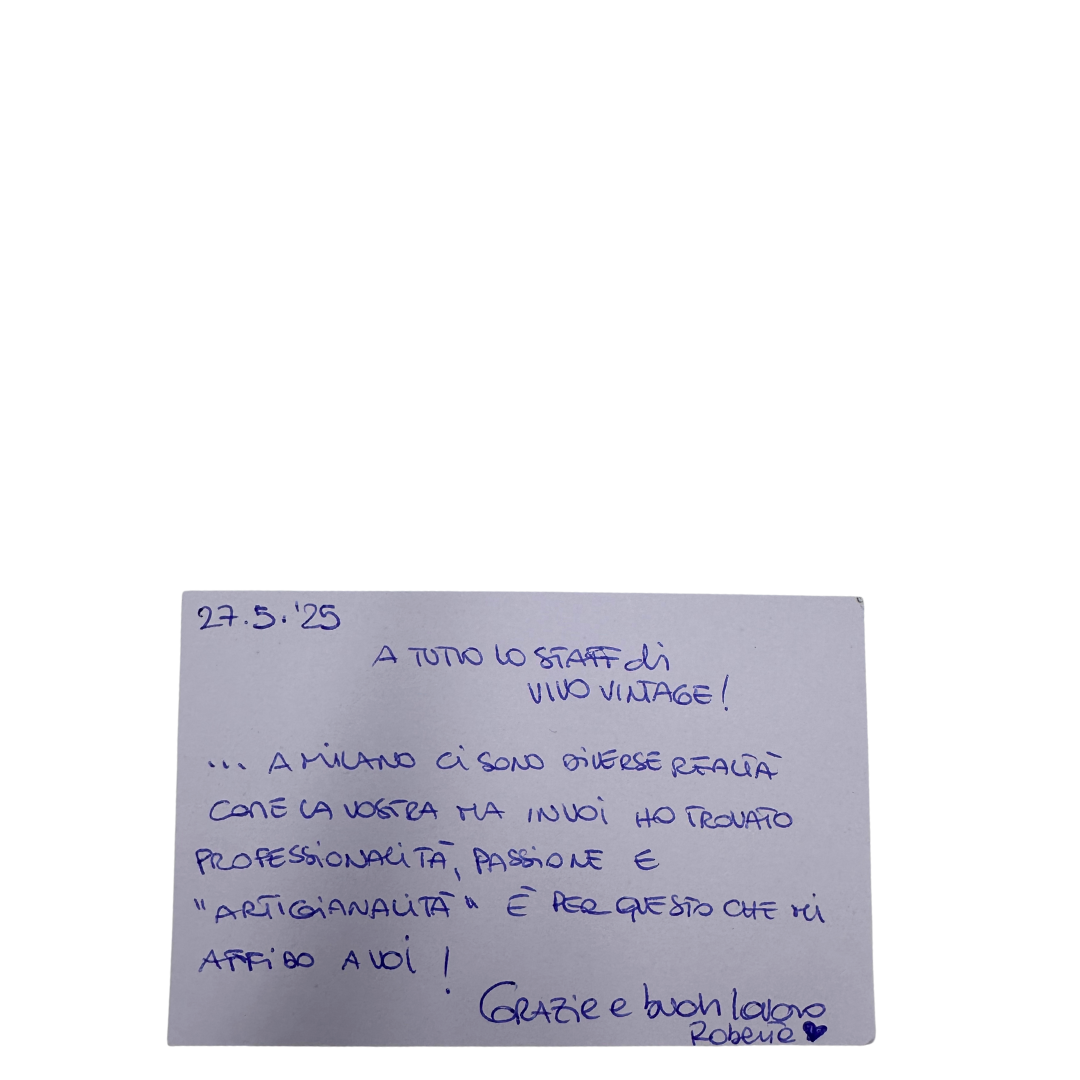 27.5.'25
A TUTTO LO STAFF di
VIVO VINTAGE!
... A MILANO Ci SONO DIVERSE REALTÀ
COME LA VOSTRA MA IN VOI HO TROVATO
PROFESSIONALITÀ, PASSIONE E
"ARTIGIANALITÀ" È PER QUESTO CHE MI
AFFIDO A VOI !
GRAZIE e buon lavoro
Roberta ♥